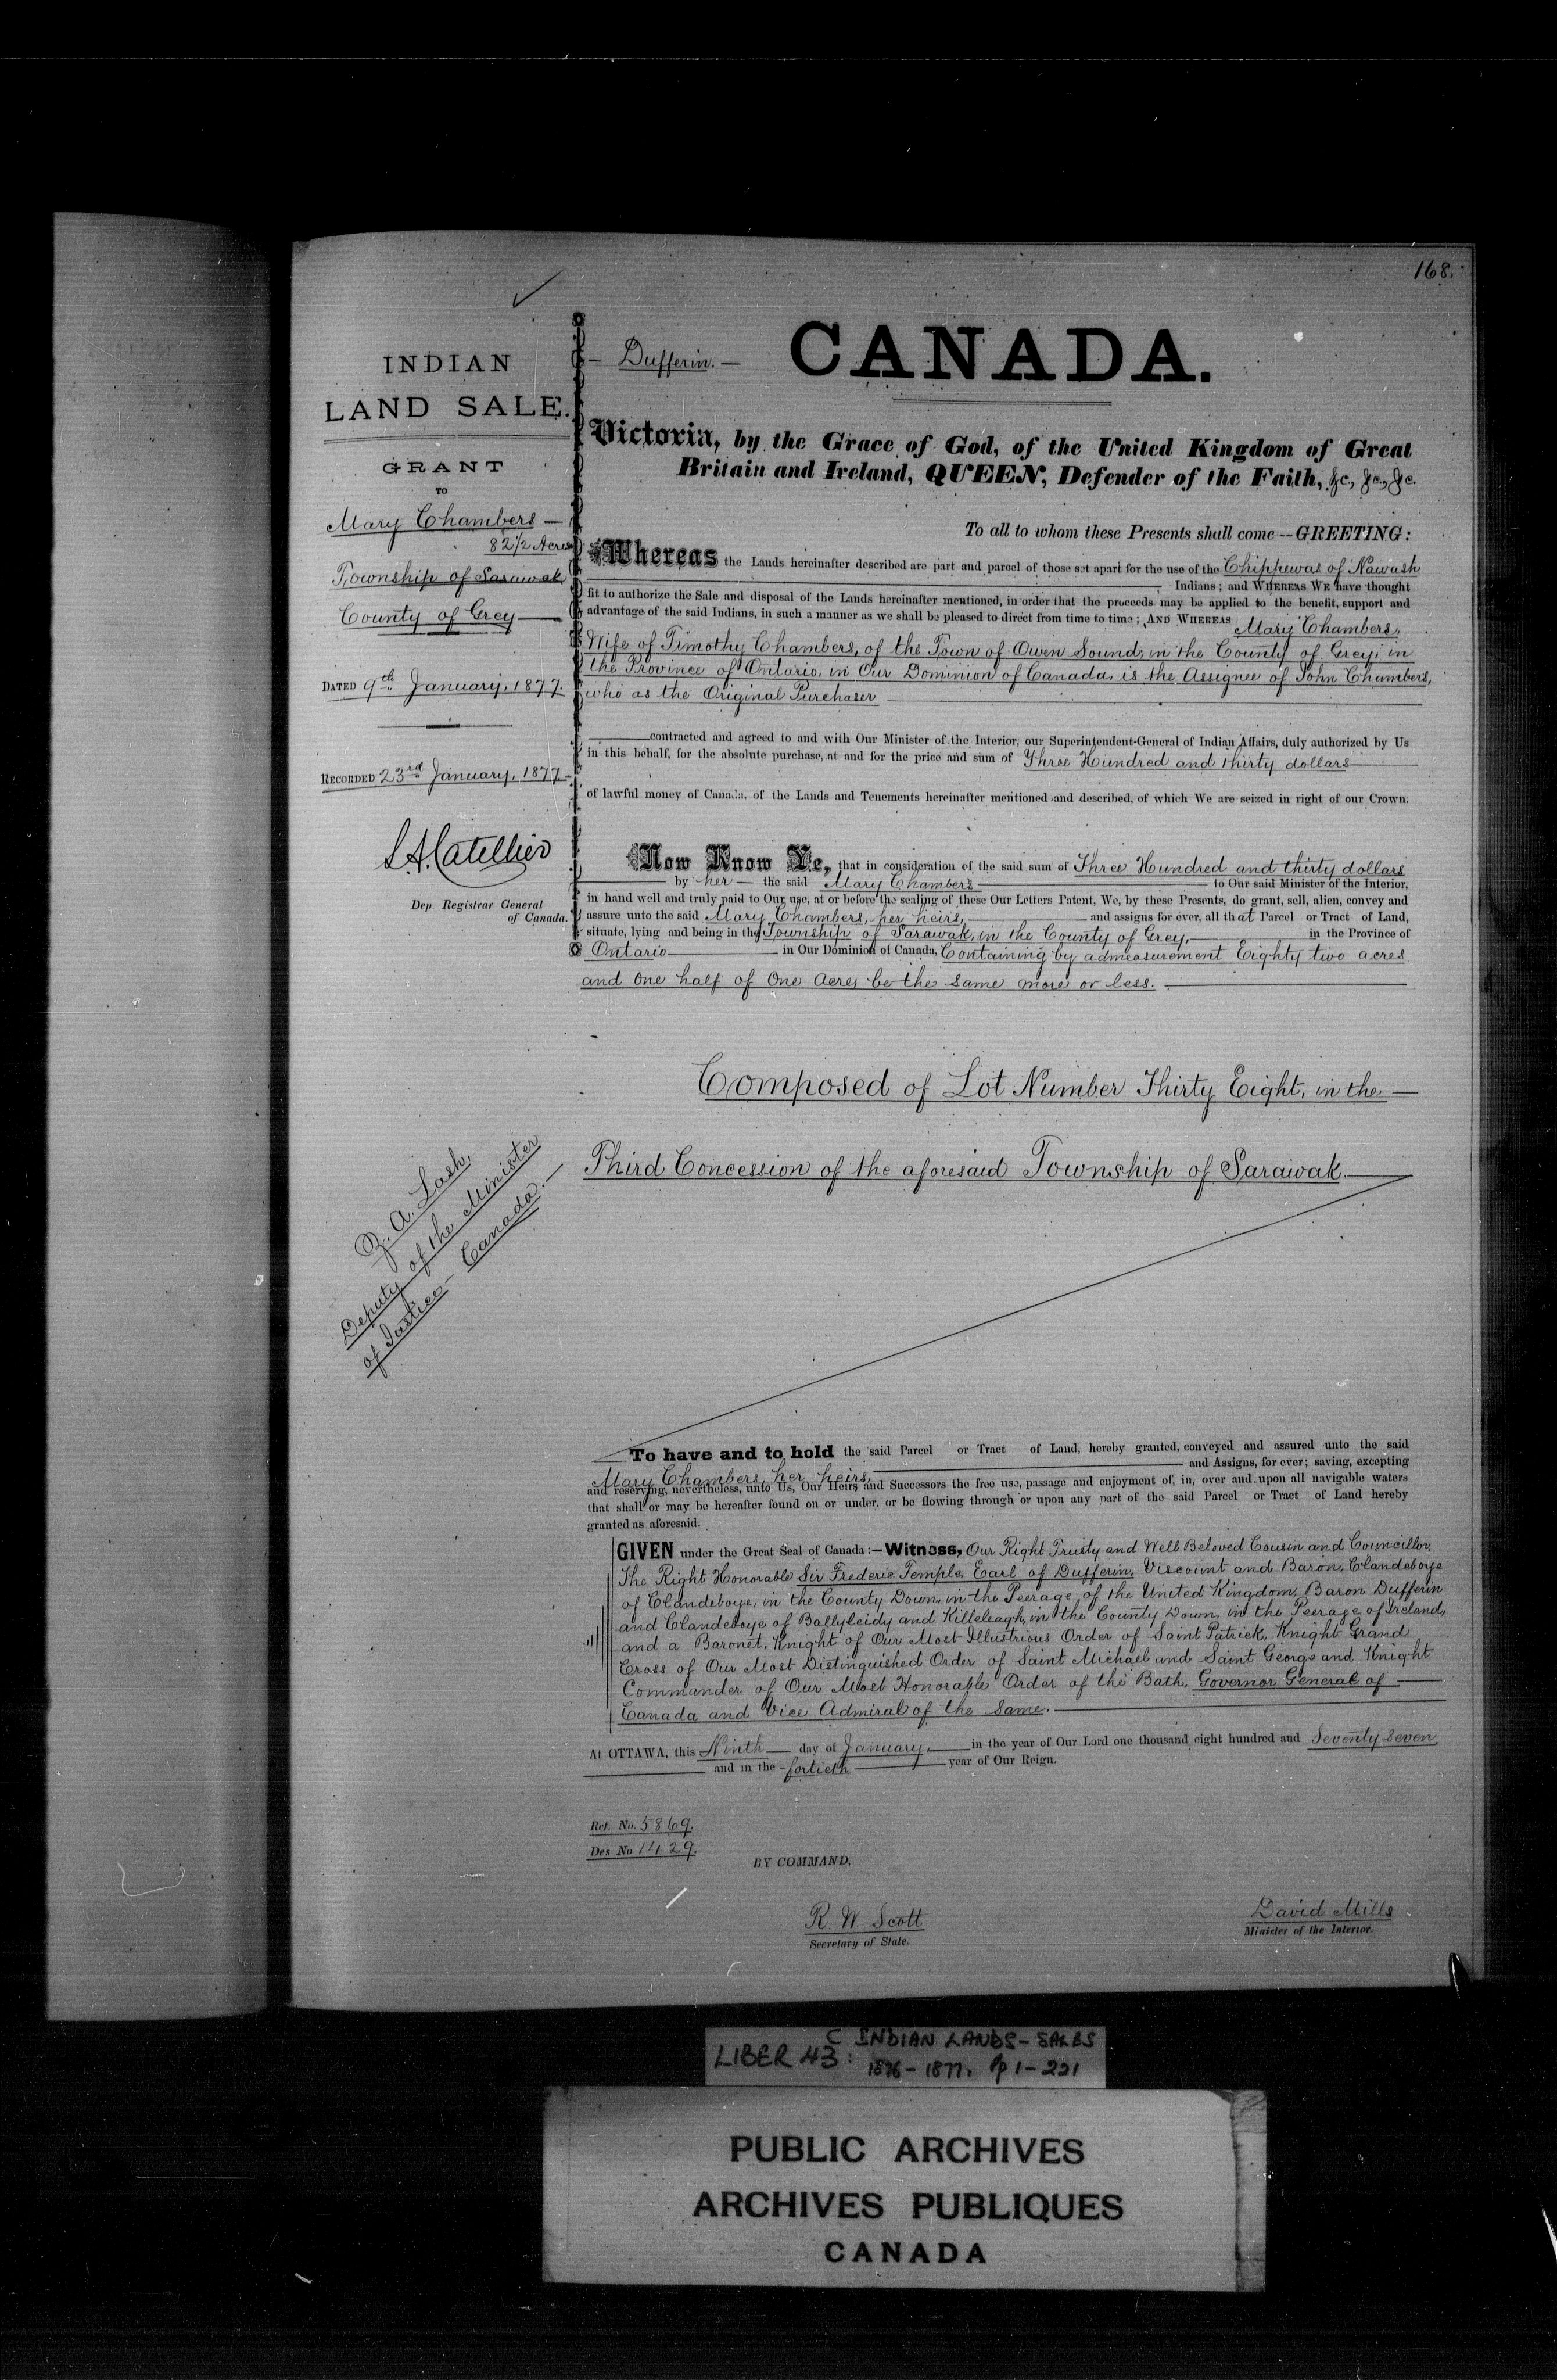 168.
INDIAN
LAND SALE.
GRANT
TO
Mary Chambers
82 1/2 Acres
Township of Sarawak
County of Grey
DATED 9th January, 1877.
RECORDED 23rd January, 1877
L.A. Catellier
Dep. Registrar General
of Canada.
Z. A. Lash,
Deputy of the Minister
of Justice - Canada.
- Dufferin. -
CANADA.
Victoria, by the Grace of God, of the United Kingdom of Great
Britain and Ireland, QUEEN, Defender of the Faith, &c, &c, &c
To all to whom these Presents shall come—GREETING:
Whereas the Lands hereinafter described are part and parcel of those set apart for the use of the Chippewas of Nawash
Indians; and WHEREAS WE have thought
fit to authorize the Sale and disposal of the Lands hereinafter mentioned, in order that the proceeds may be applied to the benefit, support and
advantage of the said Indians, in such a manner as we shall be pleased to direct from time to time; AND WHEREAS Mary Chambers,
Wife of Timothy Chambers, of the Town of Owen Sound, in the County of Grey, in
the Province of Ontario, in Our Dominion of Canada, is the Assignee of John Chambers,
who as the Original Purchaser
contracted and agreed to and with Our Minister of the Interior, our Superintendent-General of Indian Affairs, duly authorized by Us
in this behalf, for the absolute purchase, at and for the price and sum of Three Hundred and thirty dollars
of lawful money of Canada, of the Lands and Tenements hereinafter mentioned and described, of which We are seized in right of our Crown.
Now Know Ye, that in consideration of the said sum of Three Hundred and thirty dollars
by her the said Mary Chambers to Our said Minister of the Interior,
in hand well and truly paid to Our use, at or before the sealing of these Our Letters Patent, We, by these Presents, do grant, sell, alien, convey and
assure unto the said Mary Chambers, her heirs, and assigns for ever, all that Parcel or Tract of Land,
situate, lying and being in the Township of Sarawak, in the County of Grey, in the Province of
Ontario in Our Dominion of Canada, Containing by admeasurement Eighty two acres
and One half of One Acre, be the same more or less.
Composed of Lot Number Thirty Eight, in the
Third Concession of the aforesaid Township of Sarawak
To have and to hold the said Parcel or Tract of Land, hereby granted, conveyed and assured unto the said
Mary Chambers, her heirs, and Assigns, for ever; saving, excepting
and reserving, nevertheless, unto Us, Our Heirs and Successors the free use, passage and enjoyment of, in, over and upon all navigable waters
that shall or may be hereafter found on or under, or be flowing through or upon any part of the said Parcel or Tract of Land hereby
granted as aforesaid.
GIVEN under the Great Seal of Canada:—Witness, Our Right Trusty and Well Beloved Cousin and Councillor,
The Right Honorable Sir Frederic Temple, Earl of Dufferin, Viscount and Baron, Clandeboye
of Clandeboye, in the County Down, in the Peerage of the United Kingdom, Baron Dufferin
and Clandeboye of Ballyleidy and Killeleagh, in the County Down, in the Peerage of Ireland,
and a Baronet, Knight of Our Most Illustrious Order of Saint Patrick, Knight Grand
Cross of Our Most Distinguished Order of Saint Michael and Saint George and Knight
Commander of Our Most Honorable Order of the Bath, Governor General of
Canada and Vice Admiral of the same.
At OTTAWA, this Ninth day of January, in the year of Our Lord one thousand eight hundred and Seventy Seven
and in the fortieth year of Our Reign.
Ref. No. 5869.
Des No 1429.
BY COMMAND,
R. W. Scott
Secretary of State.
David Mills
Minister of the Interior.
LIBER 43C: INDIAN LANDS - SALES
1876-1877. Pp 1-221
PUBLIC ARCHIVES
ARCHIVES PUBLIQUES
CANADA